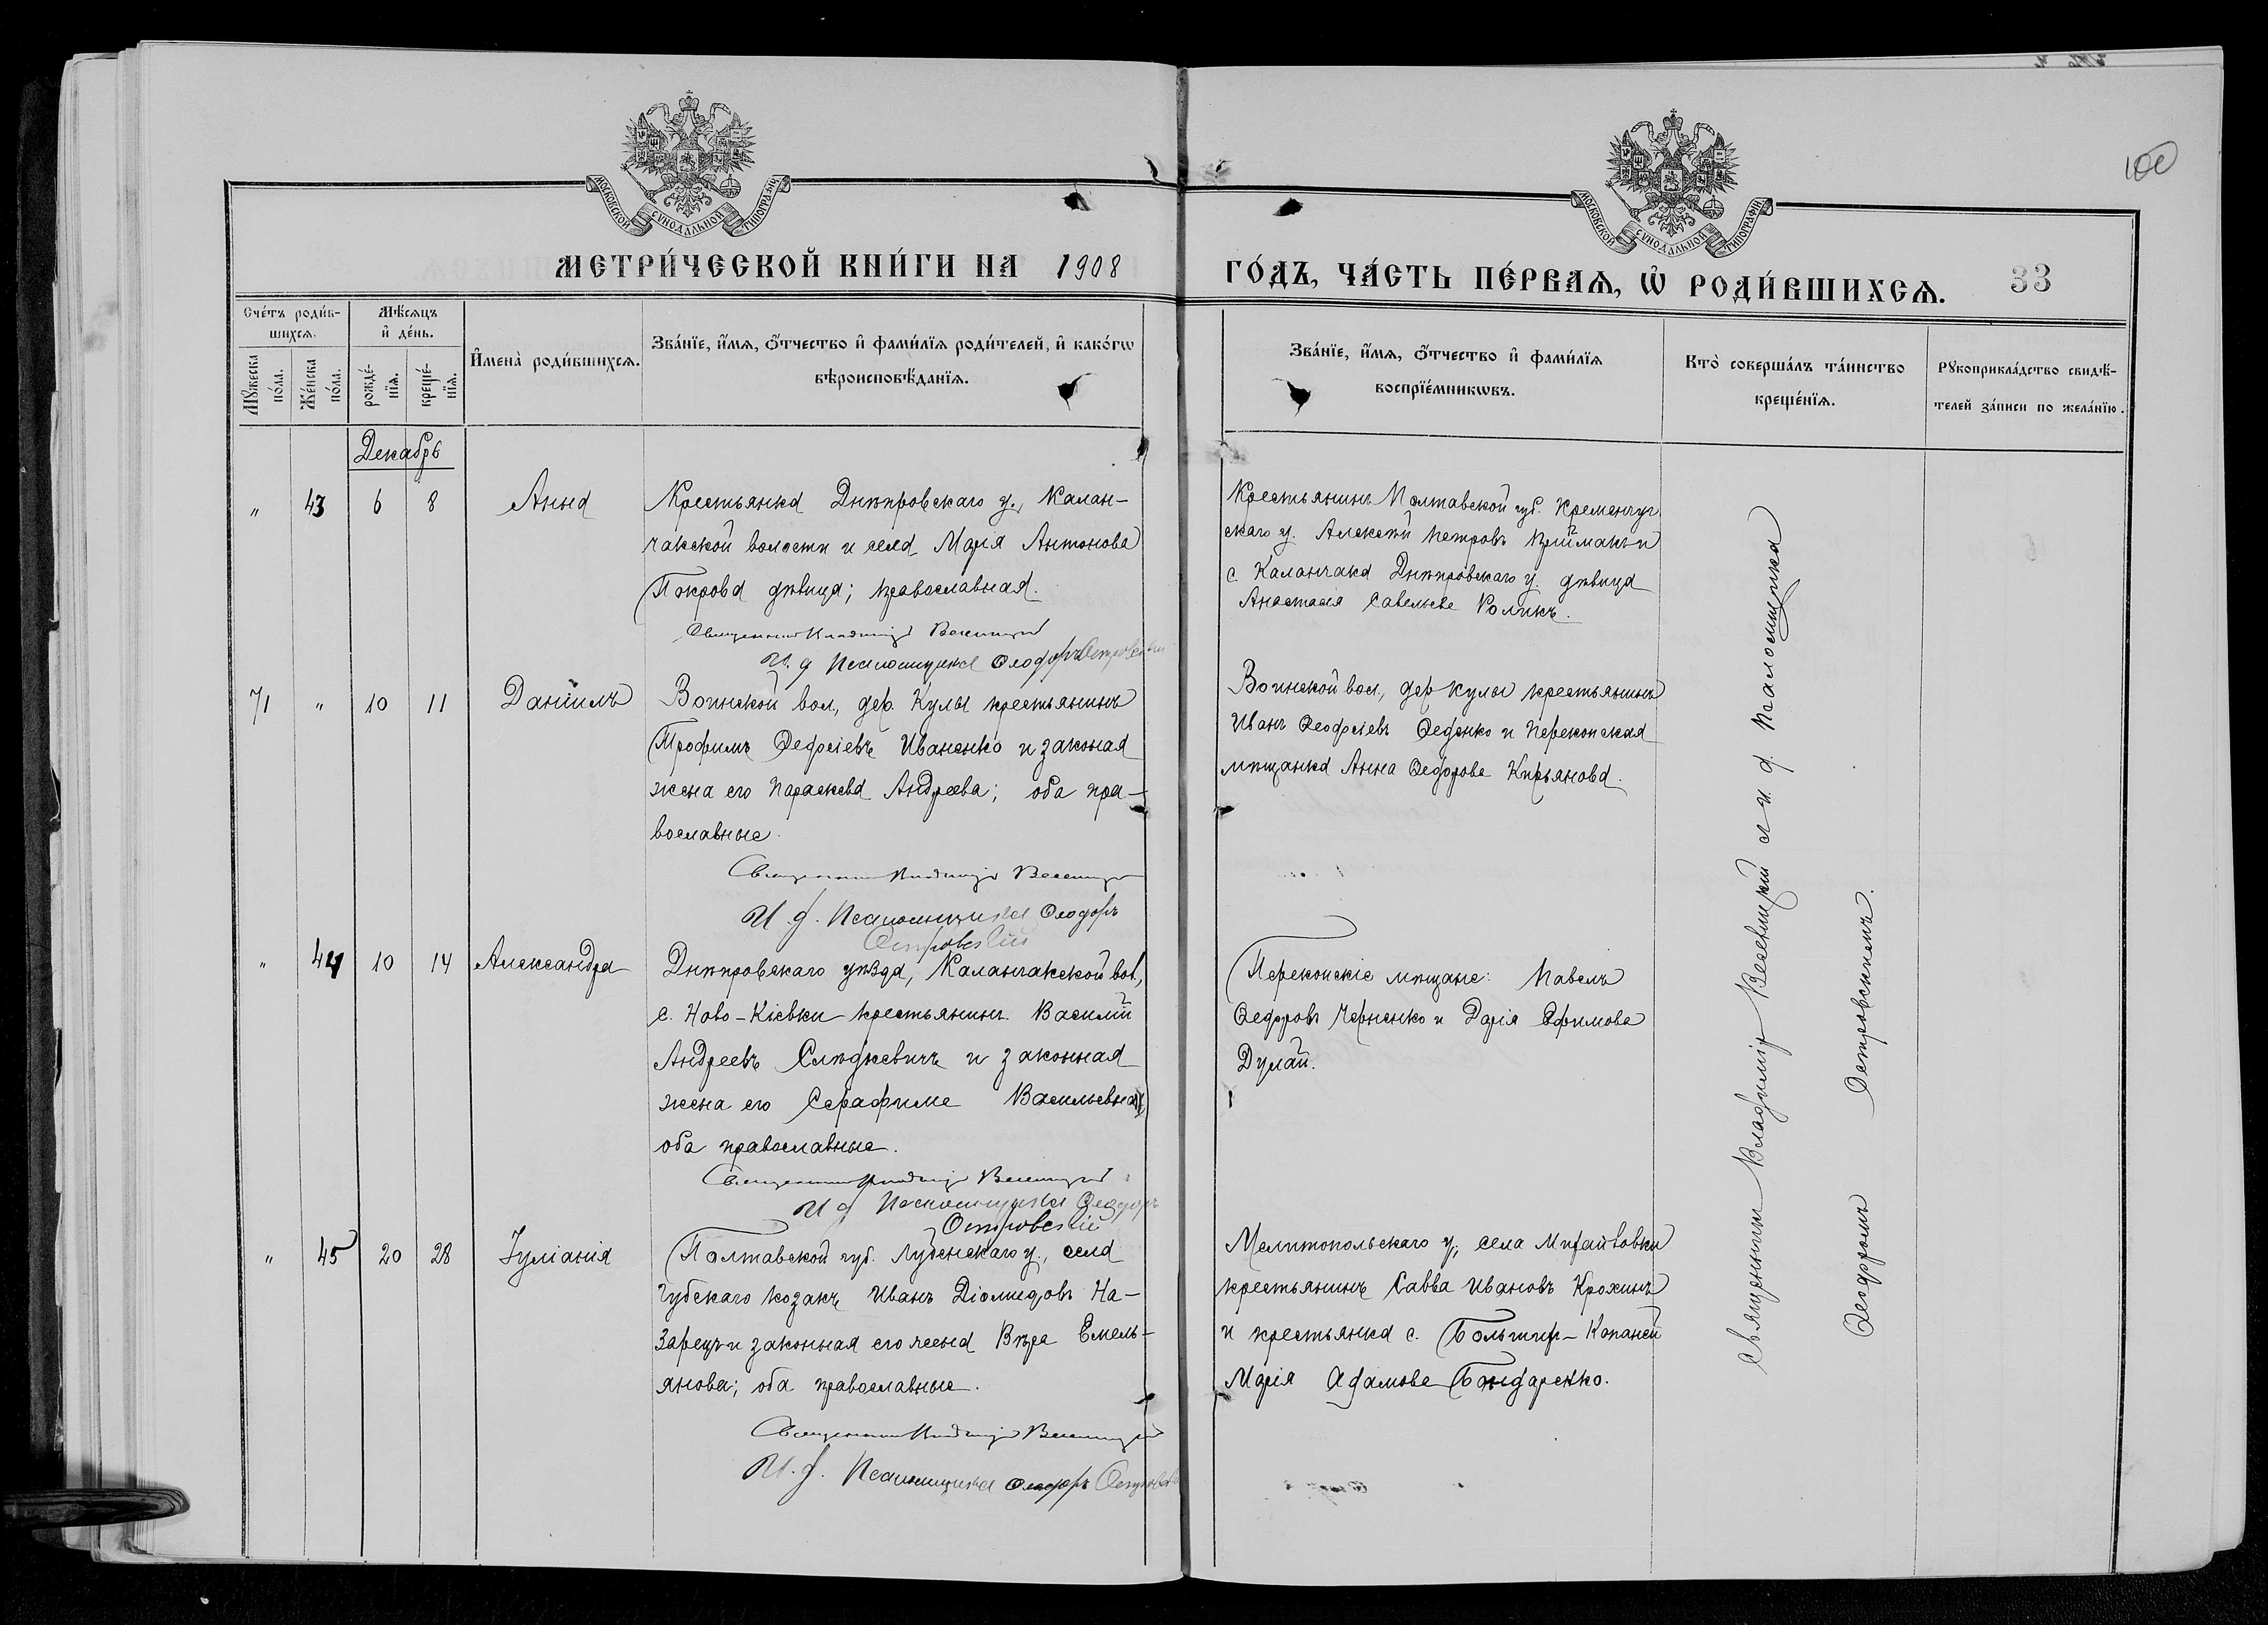 100
МОСКОВСКОЙ СѴНОДАЛЬНОЙ ТИПОГРАФІИ
МОСКОВСКОЙ СѴНОДАЛЬНОЙ ТИПОГРАФІИ
МЕТРИ́ЧЕСКОЙ КНИ́ГИ НА 1908
ГО́ДЪ, ЧА́СТЬ ПЕ́РВАѦ, Ѡ҆ РОДИ́ВШИХСѦ.
33
Сче́тъ роди́в-
шихсѧ.
Мꙋ́жеска
по́ла.
Же́нска
по́ла.
Мѣ́сѧцъ
и҆ де́нь.
рожде́-
нїѧ.
креще́-
нїѧ.
И҆мена̀ роди́вшихсѧ.
Зва́нїе, и҆́мѧ, ѻ҆́тчество и҆ фами́лїѧ роди́телей, и҆ како́гѡ
вѣроисповѣ́данїѧ.
Зва́нїе, и҆́мѧ, ѻ҆́тчество и҆ фами́лїѧ
воспрїе́мникѡвъ.
Кто̀ соверша́лъ та́инство
креще́нїѧ.
Рꙋкоприкла́дство свидѣ́-
телей за́писи по жела́нїю.
Декабрь
" 43 6 8 Анна
Крестьянка Днѣпровскаго у., Калан-
чакской волости и села Марія Антонова
Покрова дѣвица; православная.
Священникъ Владиміръ Весницкій
И. д Псаломщика Ѳеодоръ Островскій
Крестьянинъ Полтавской губ. Кременчуг
скаго у. Алексѣй Петровъ Приймакъ и
с. Каланчака Днѣпровскаго у. дѣвица
Анастасія Савельева Роликъ.
71 " 10 11 Даніилъ
Воинской вол., дер. Кулы крестьянинъ
Трофимъ Ѳедосіевъ Иваненко и законая
жена его Параскева Андреева; оба пра-
вославные.
Священникъ Владиміръ Весницкій
И. д. Псаломщика Ѳеодоръ
Островскій
Воинской вол., дер Кулы крестьянинъ
Иванъ Ѳеодосіевъ Ѳеденко и Перекопская
мѣщанка Анна Ѳедорова Кирьянова.
" 44 10 14 Александра
Днѣпровскаго уѣзда, Каланчакской вол.,
с. Ново-Кіевки крестьянинъ Василій
Андреевъ Слѣдкевичъ и законная
жена его Серафима Васильевна;
оба православные.
Священникъ Владиміръ Весницкій
И д Псаломщика Ѳеодоръ
Островскій
Перекопскіе мѣщане: Павелъ
Ѳедоровъ Черненко и Дарія Ефимова
Дулай.
" 45 20 28 Іуліанія
Полтавской губ. Лубенскаго у., села
Чубскаго козакъ Иванъ Діомидовъ На-
зарецъ и законная его жена Вѣра Емель-
янова; оба православные.
Священникъ Владиміръ Весницкій
И. д. Псаломщика Ѳеодоръ Островскій
Мелитопольскаго у; села Михайловки
крестьянинъ Савва Ивановъ Крохинъ
и крестьянка с. Большихъ-Копаней
Марія Адамова Бондаренко.
Священникъ Владиміръ Весницкій съ и. д. Псаломщика
Ѳеодоромъ Островскимъ.